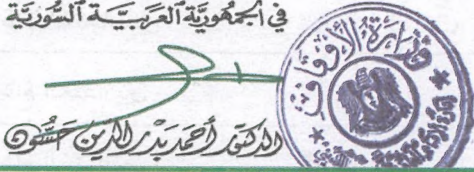 في الجمهورية العربية السورية
وزارة الأوقاف
الدكتور أحمد بدر الدين حسون